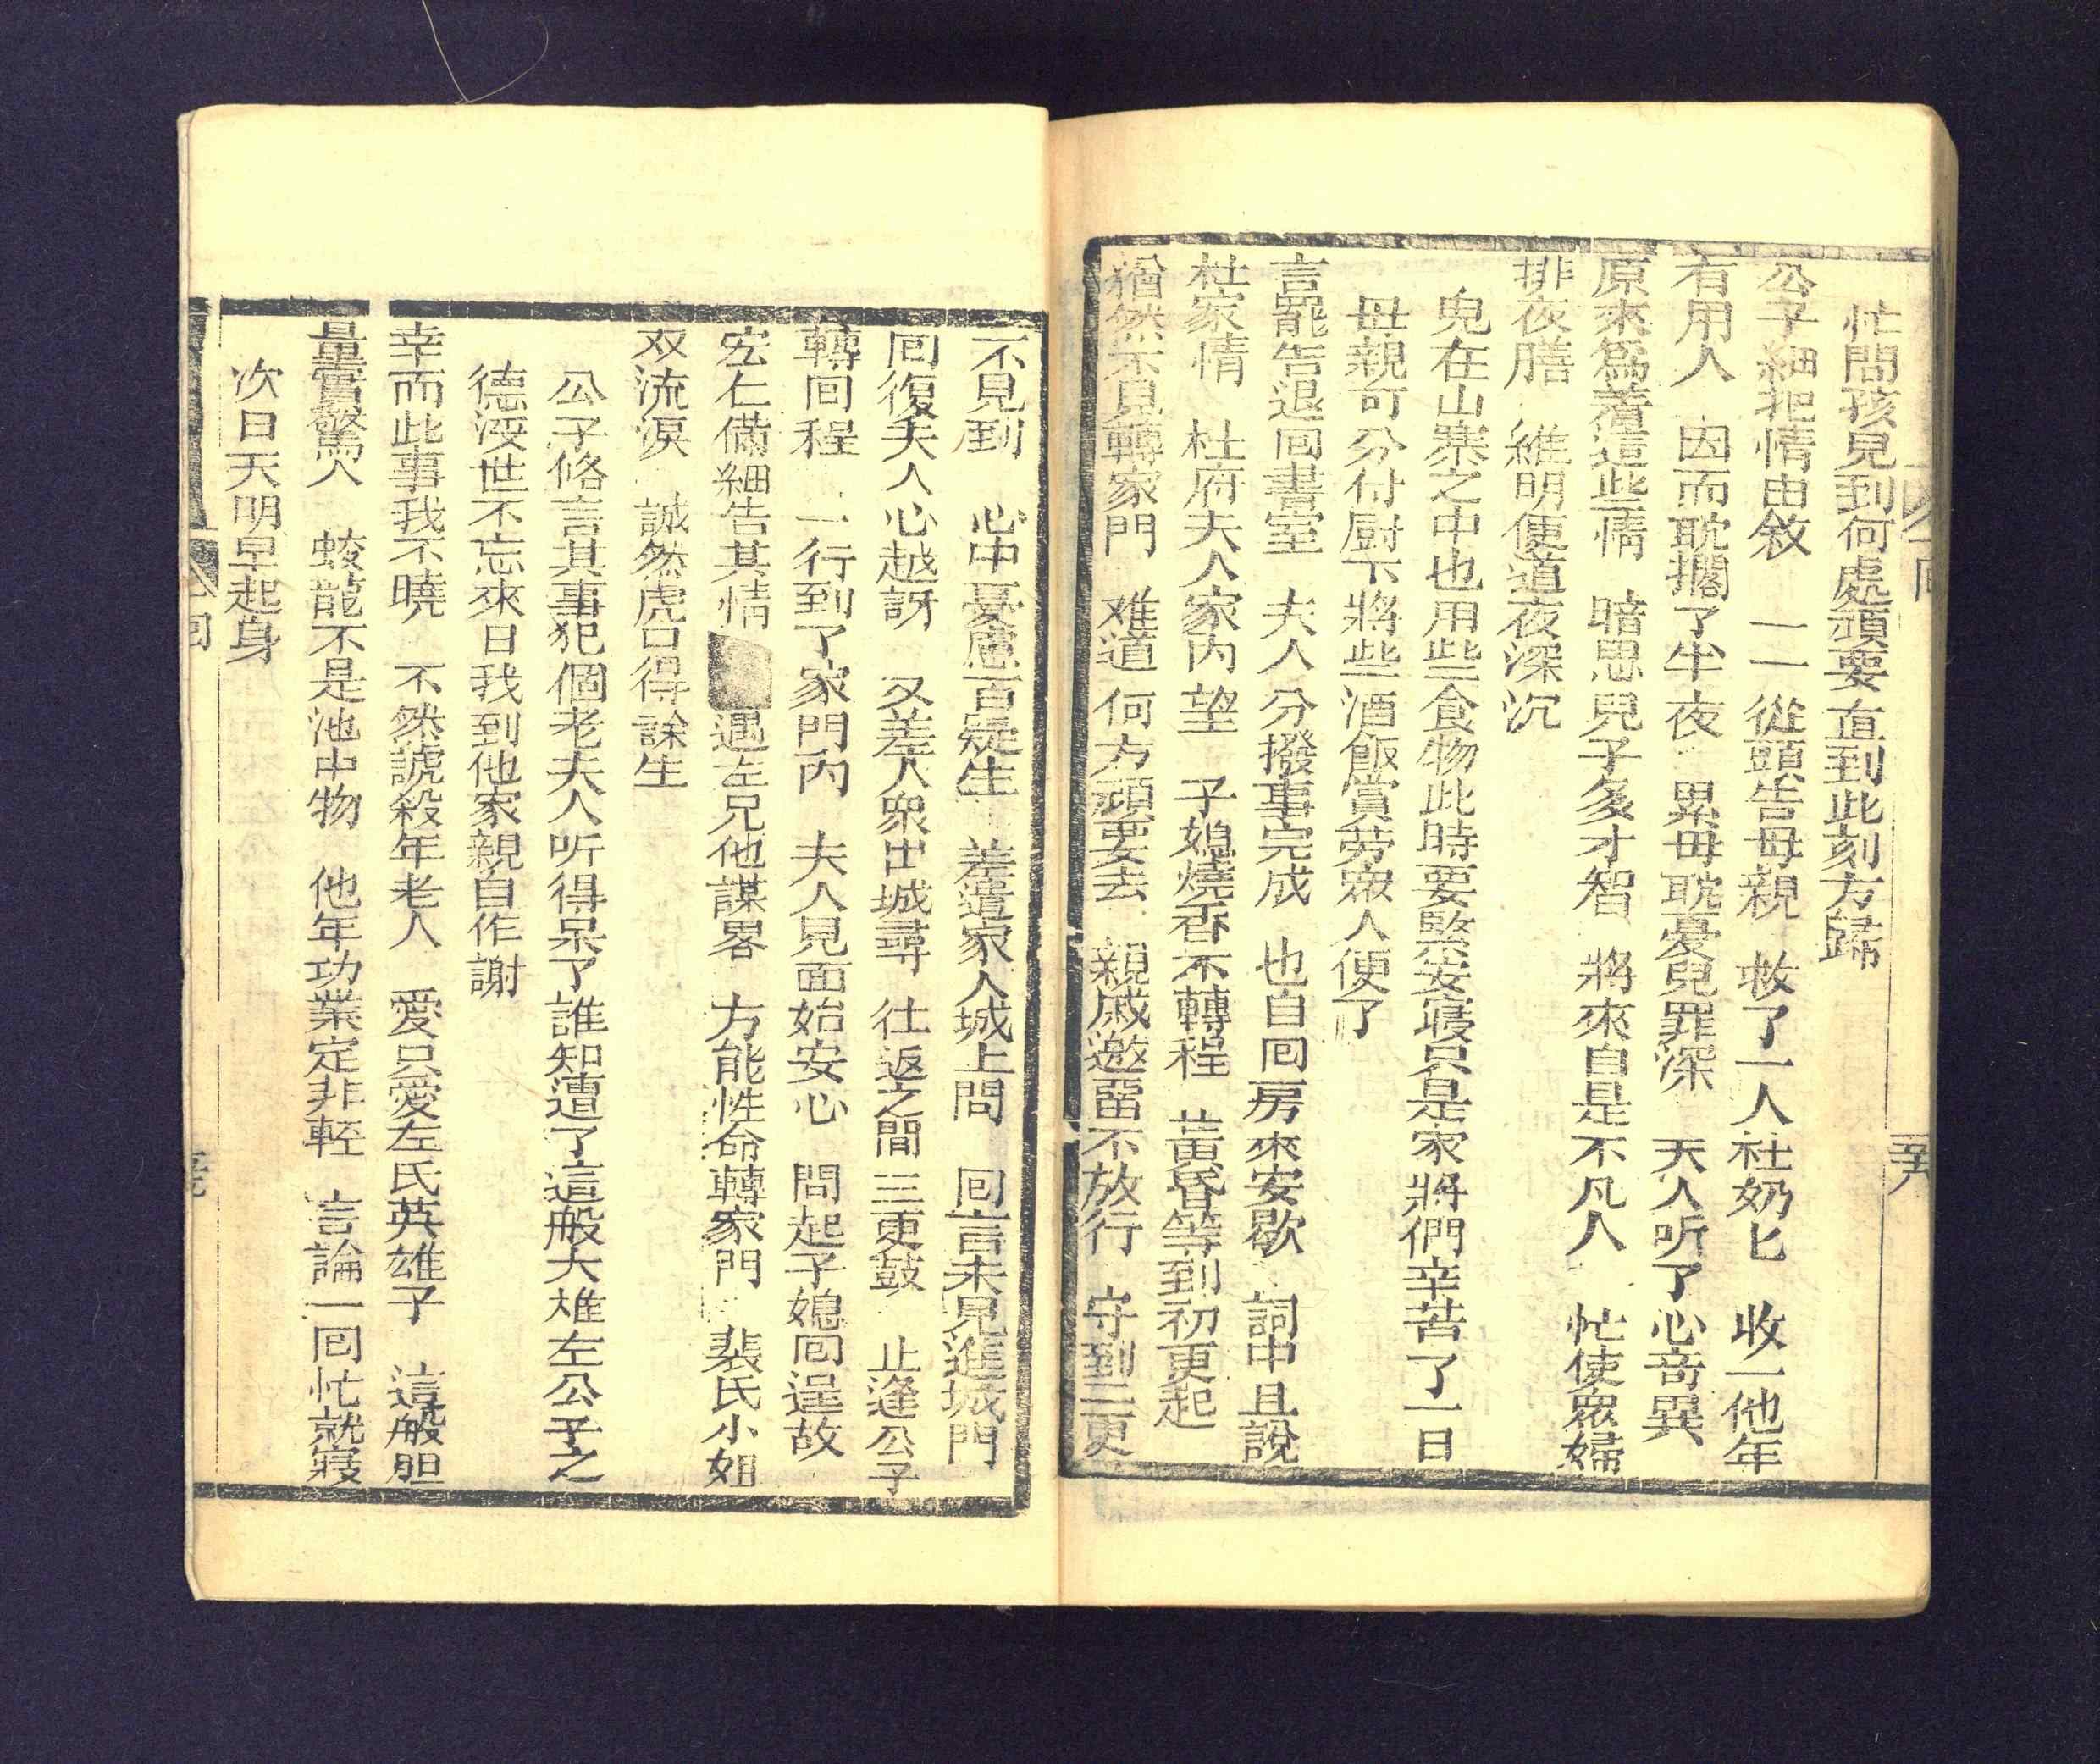 忙問孩兒到何處頑耍直到此刻方歸
公子細把情由敘　一一從頭告母親　救了一人杜奶匕　收一他年
有用人　因而耽擱了半夜　累母耽憂兒罪深　夫人听了心竒異
原來爲着這些情　暗思兒子多才智　將來自是不凡人　忙使眾婦
排夜膳　維明便道夜深沉
兒在山寨之中也用些食物此時要緊安寢只是家將們辛苦了一日
母親可分付厨下將些酒飯賞劳眾人便了
言罷告退囘書室　夫人分撥事完成　也自囘房來安歇　詞中且說
杜家情　杜府夫人家内望　子媳燒香不轉程　黃昏等到初更起
猶然不見轉家門　难道何方頑耍去　親戚邀畱不放行　守到二更
不見到　心中憂慮百疑生　差遣家人城上問　囘言未見進城門
囘復夫人心越訝　又差人衆出城尋　往返之間三更鼓　止逢公子
轉囘程　一行到了家門内　夫人見面始安心　問起子媳囘遲故
宏仁備細告其情　遇左兄他謀畧　方能性命轉家門　裴氏小姐
双流淚　誠然虎口得餘生
公子佫言其事犯個老夫人听得呆了誰知遭了這般大难左公子之
德没世不忘來日我到他家親自作謝
幸而此事我不曉　不然諕殺年老人　愛只愛左氏英雄子　這般胆
量實驚人　蛟龍不是池中物　他年功業定非輕　言論一囘忙就寢
次日天明早起身